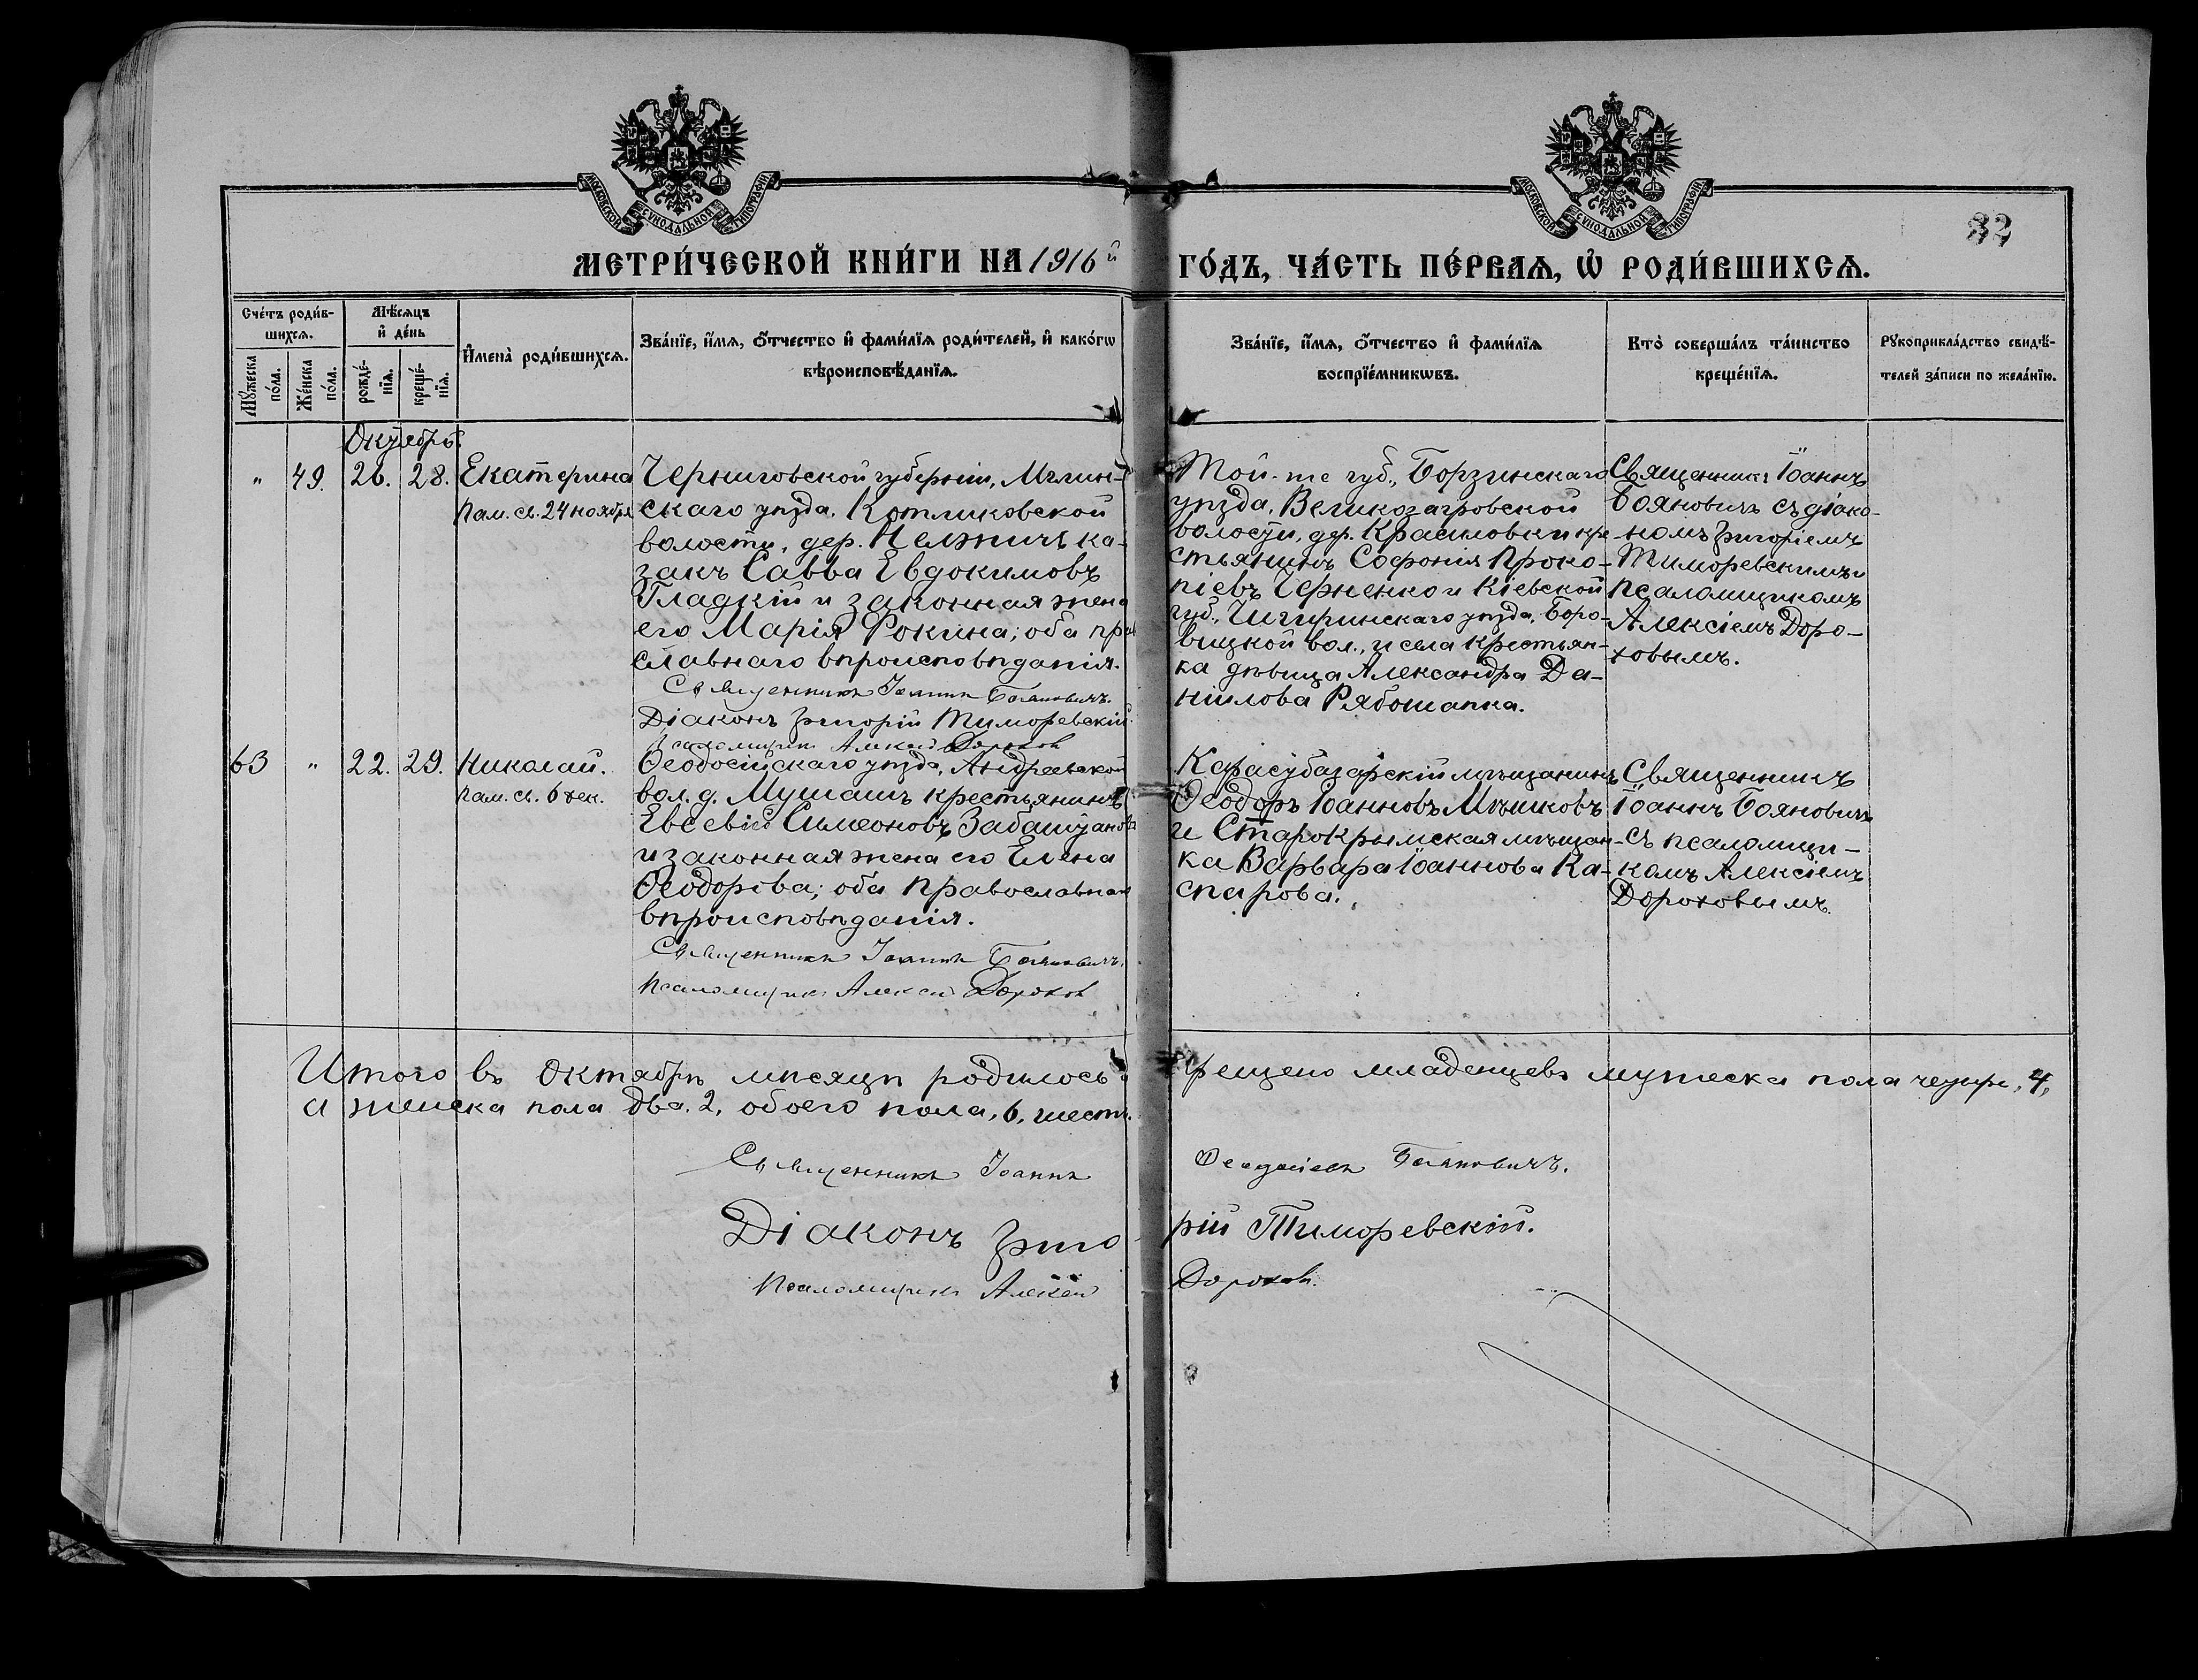 МОСКОВСКОЙ СѴНОДАЛЬНОЙ ТИПОГРАФІИ
МОСКОВСКОЙ СѴНОДАЛЬНОЙ ТИПОГРАФІИ
32
МЕТРИ́ЧЕСКОЙ КНИ́ГИ НА 1916й
ГО́ДЪ, ЧА́СТЬ ПЕ́РВАѦ, Ѡ҆ РОДИ́ВШИХСѦ.
Сче́тъ роди́в-
шихсѧ.
Мꙋ́жеска
по́ла.
Же́нска
по́ла.
Мѣ́сѧцъ
и҆ де́нь
рожде́-
нїѧ.
креще́-
нїѧ.
И҆мена̀ роди́вшихсѧ.
Зва́нїе, и҆́мѧ, ѻ҆́тчество и҆ фами́лїѧ роди́телей, и҆ како́гѡ
вѣроисповѣ́данїѧ.
Зва́нїе, и҆́мѧ, ѻ҆́тчество и҆ фами́лїѧ
воспрїе́мникѡвъ.
Кто̀ соверша́лъ та́инство
креще́нїѧ.
Рꙋкоприкла́дство свидѣ́-
телей за́писи по жела́нїю.
Октябрь.
" 49. 26. 28. Екатерина
Пам. св. 24 ноября
Черниговской губерніи, Мглин-
скаго уѣзда, Котляковской
волости, дер. Нелжичъ ка-
закъ Савва Евдокимовъ
Гладкій и законная жена
его Марія Фокина; оба пра
славнаго вѣроисповѣданія.
Священникъ Іоаннъ Бояновичъ.
Діаконъ Григорій Тиморевскій.
Псаломщикъ Алексѣй Дорохов
Той-же губ., Борзинскаго
уѣзда, Великозагоровской
волости, дер. Красиловки кре-
стьянинъ Софонія Проко-
піевъ Черненко и Кіевской
губ., Чигиринскаго уѣзда, Боро-
вицкой вол., и села крестьян-
ка дѣвица Александра Да-
ніилова Рябошапка.
Священникъ Іоаннъ
Бояновичъ съ діако-
номъ Григоріемъ
Тиморевскимъ и
псаломщикомъ
Алексіемъ Доро-
ховымъ.
63 " 22. 29. Николай.
Пам. св. 6 дек.
Ѳеодосійскаго уѣзда, Андреевской
вол. д. Мушашъ крестьянинъ
Евсевій Симеоновъ Забаштанов
и законная жена его Елена
Ѳеодорова; оба православнаго
вѣроисповѣданія.
Священникъ Іоаннъ Бояновичъ.
Псаломщикъ Алексѣй Дорохов
Карасубазарскій мѣщанинъ
Ѳеодоръ Іоанновъ Мѣшковъ
и Старокрымская мѣщан-
ка Варвара Іоаннова Ка-
спарова.
Священникъ
Іоаннъ Бояновичъ
съ псаломщи-
комъ Алексіемъ
Дороховымъ.
Итого въ Октябрѣ мѣсяцѣ родилось и крещено младенцевъ мужеска пола четыре, 4,
а женска пола два, 2, обоего пола, 6, шесть.
Священникъ Іоаннъ Бояновичъ.
Діаконъ Григорій Тиморевскій.
Псаломщикъ Алексѣй Дорохов.